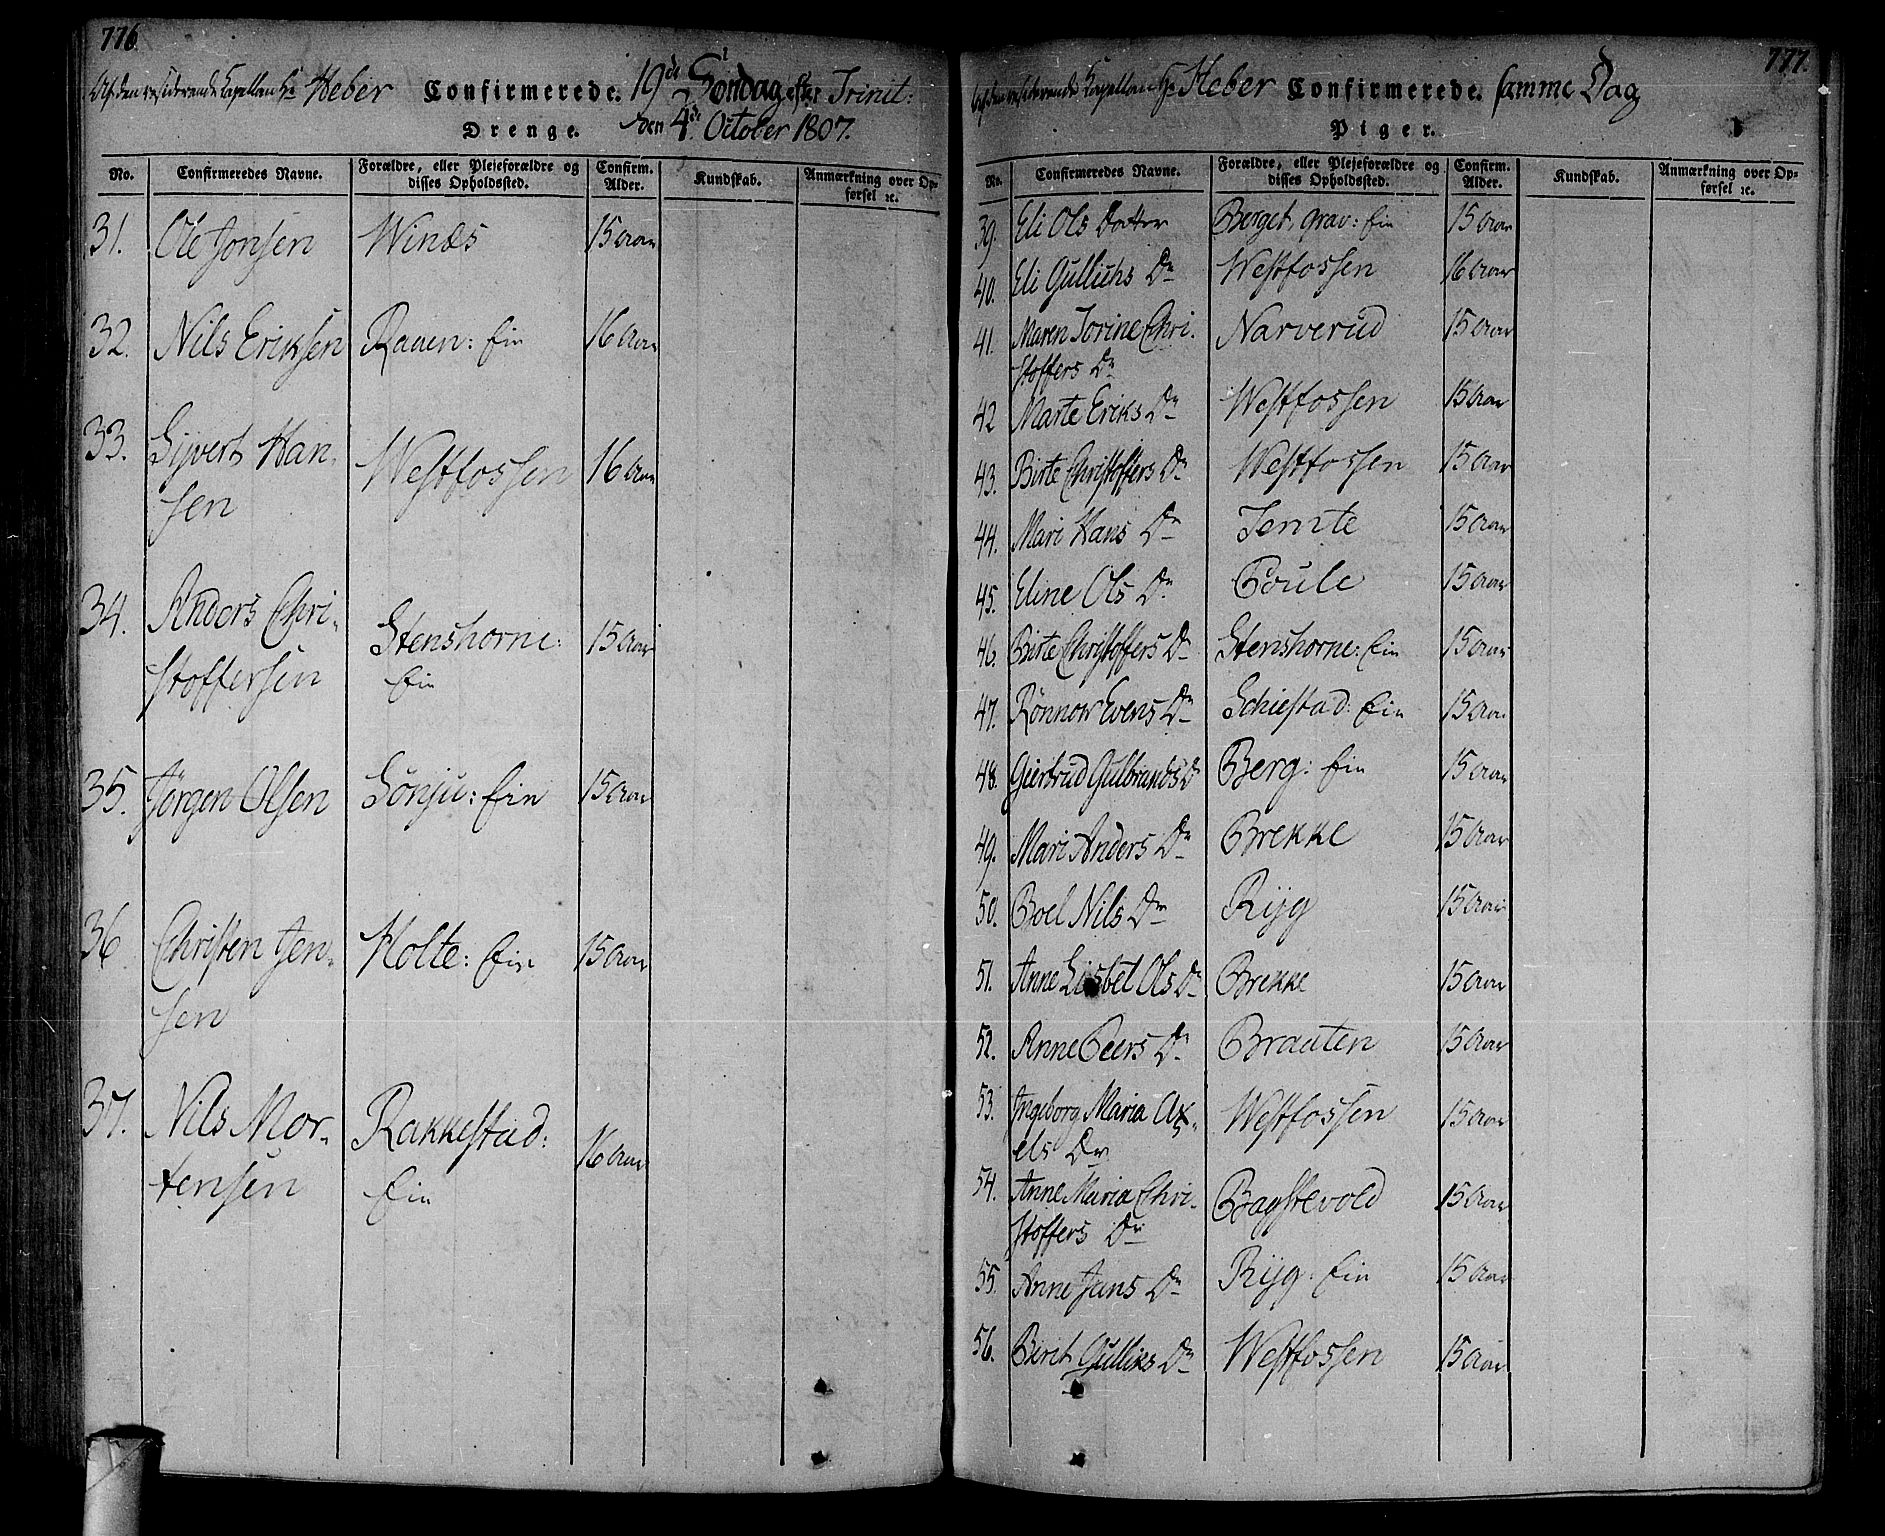 776.
Af den residerende Capellan Hr Heber Confirmerede. 19de Søndag efter Trinit:
Drenge. den 4de October 1807.
No. Confirmeredes Navne. Forældre, eller Plejeforældre og disses Opholdssted. Confirm. Alder. Kundskab. Anmærkning over Opførsel ꝛc.
31. Ole Jonsen Winæs 15 Aar
32. Nils Eriksen Raaen: Ein 16 Aar
33. Syvert Han-
sen Westfossen 16 Aar
34. Anders Chri-
stoffersen Stenshorne: Ein 15 Aar
35. Jørgen Olsen Sønju: Ein 15 Aar
36 Christen Jen-
sen Holte: Ein 15 Aar
37. Nils Mor-
tensen Rakkestad: Ein 16 Aar
777.
Af den residerende Capellan Hr Heber Confirmerede. samme Dag
Piger.
No. Confirmeredes Navne. Forældre, eller Plejeforældre og disses Opholdssted. Confirm. Alder. Kundskab. Anmærkning over Opførsel ꝛc.
39. Eli Ols Datter Berget, grav: Ein 15 Aar
40. Eli Gullichs Dr Westfossen 16 Aar
41. Maren Torine Chri-
stoffers Dr Narverud 15 Aar
42 Marte Eriks Dr Westfossen 15 Aar
43. Birte Christoffers Dr Westfossen 15 Aar
44. Mari Hans Dr Temte 15 Aar
45. Eline Ols Dr Foule 15 Aar
46. Birte Christoffers Dr Stenshorne: Ein 15 Aar
47. Rønnow Evens Dr Schiestad: Ein 15 Aar
48. Giertrud Gulbrands D Berg: Ein 15 Aar
49. Mari Anders Dr Brekke 15 Aar
50. Boel Nils Dr Ryg 15 Aar
51. Anne Lisbet Ols Dr Brekke 15 Aar
52. Anne Peers Dr Brauten 15 Aar
53. Ingeborg Maria Ax-
els Dr Westfossen 15 Aar
54. Anne Maria Chri-
stoffers Dr Bagstevold 15 Aar
55. Anne Jans Dr Ryg: Ein 15 Aar
56. Birit Gulliks Dr Westfossen 15 Aar